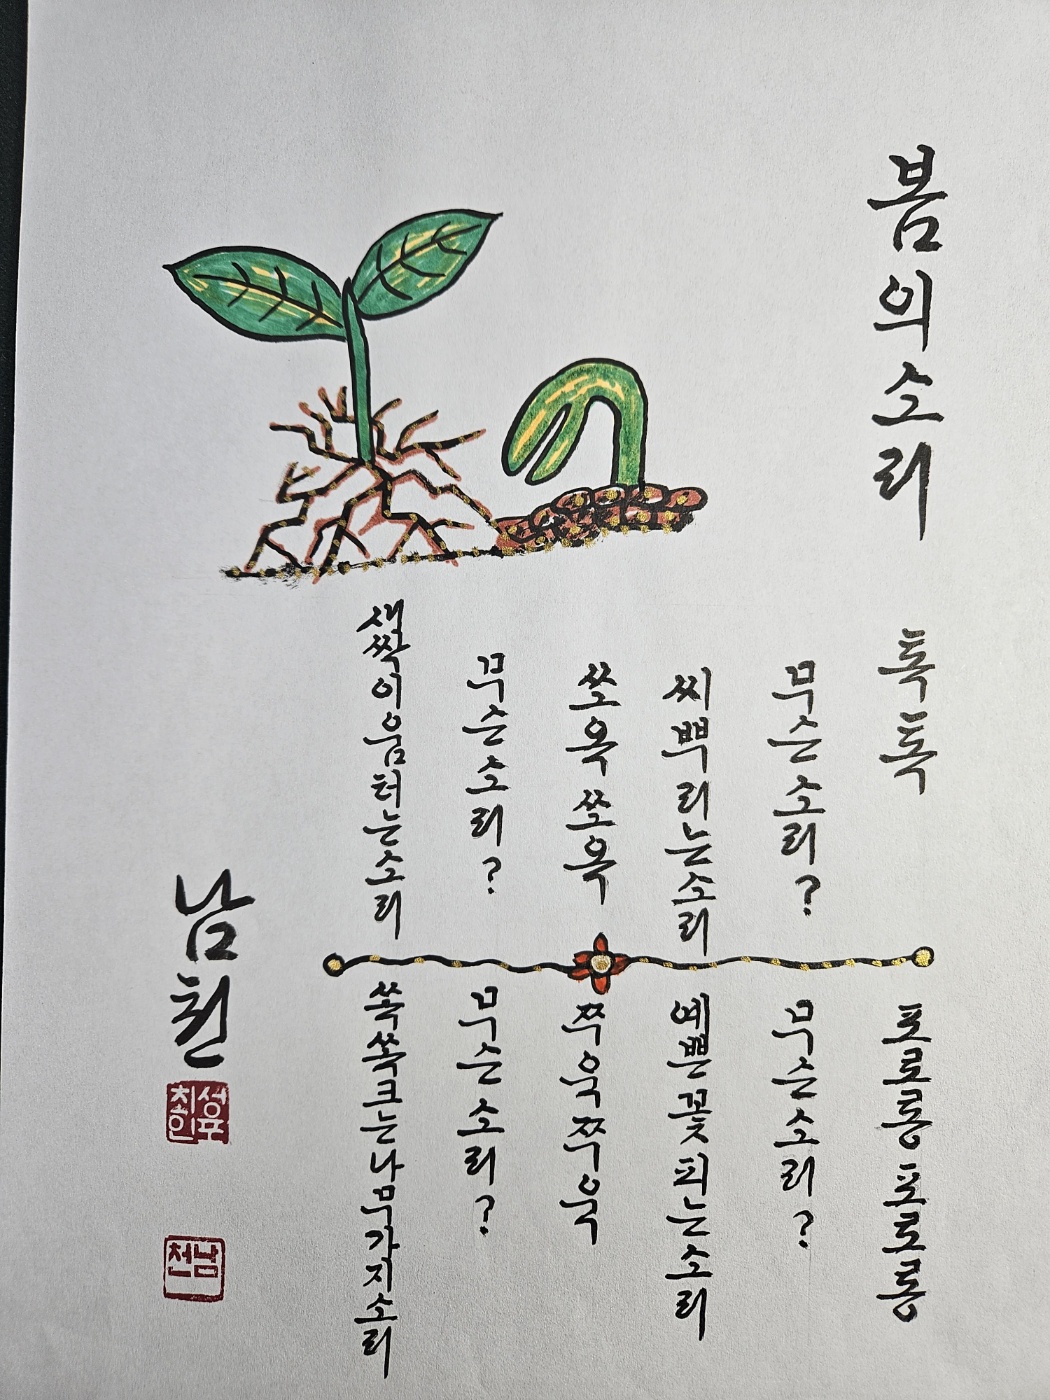 봄의소리
톡톡
무슨소리?
씨뿌리는소리
쏘옥쏘옥
무슨소리?
새싹이움터는소리
포로롱 포로롱
무슨소리?
예쁜꽃피는소리
쭈욱쭈욱
무슨소리?
쏙쏙크는나무가지소리
남천
남천